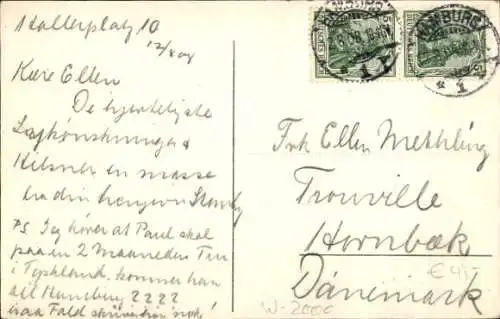 Hallerplatz 10
12/8 08
Kære Ellen
De hjerteligste
Lykønskninger &
Hilsner en masse
fra din hengivne
PS Jeg hører at Paul skal
paa en 2 Maaneders Tur
i Tyskland. kommer han
til Hamburg ????
isaa Fald skriver han nok!
HAMBURG
HAMBURG
1
* 1
Frk Ellen Methling
Trouville
Hornbæk
Dänemark
W-2000